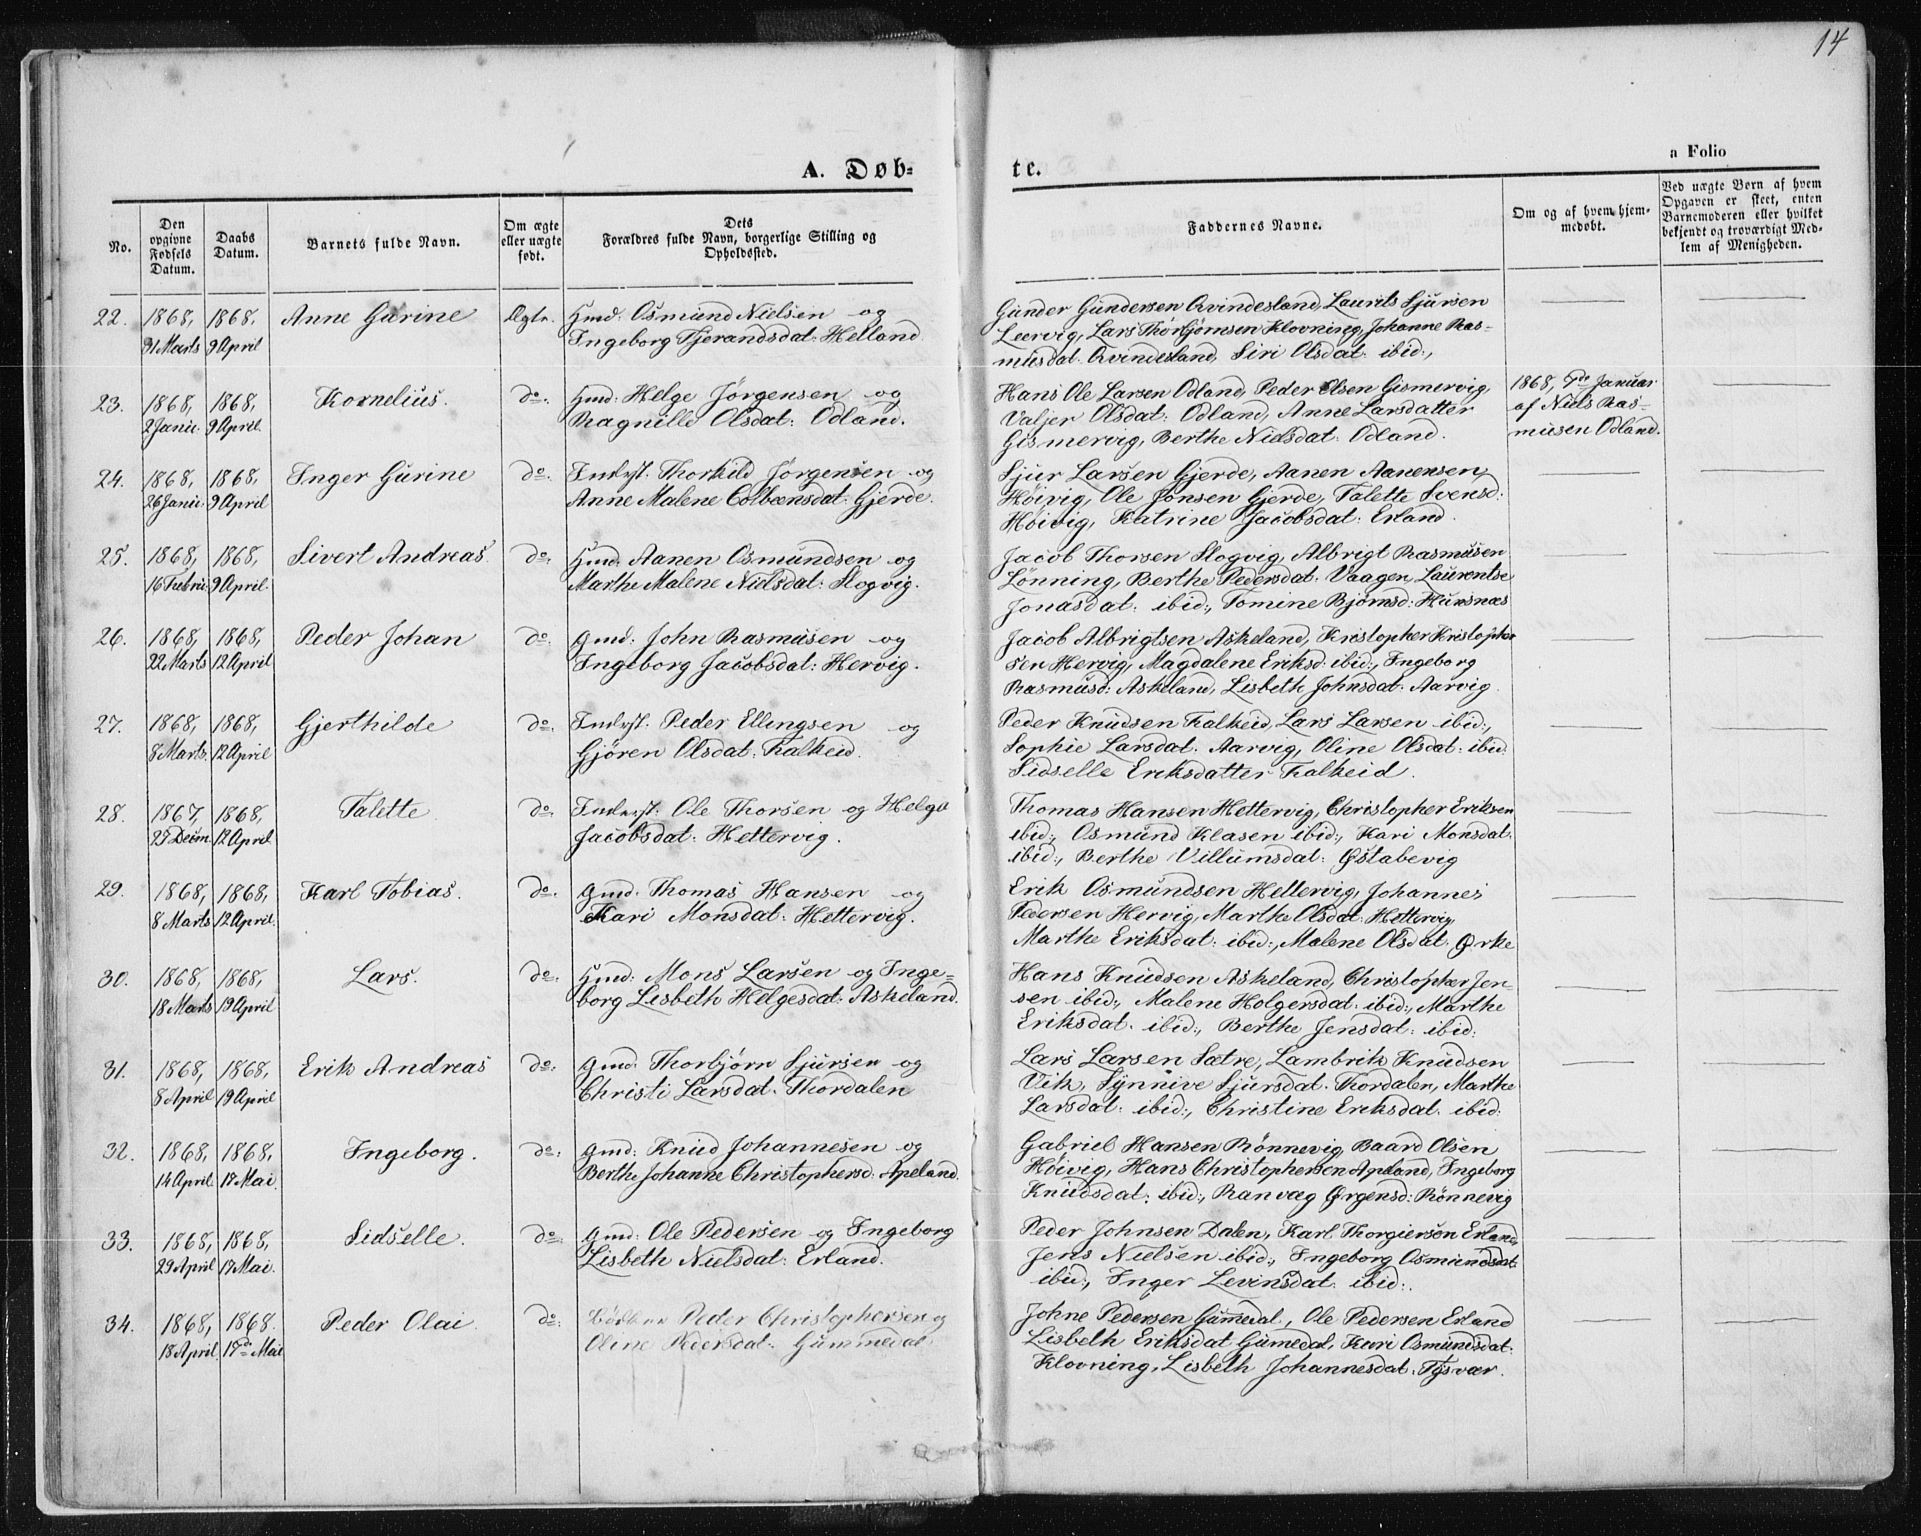 14
a Folio
A. Døb-
te.
No.
Den opgivne Fødsels Datum.
Daabs Datum.
Barnets fulde Navn.
Om ægte eller uægte født.
Dets Forældres fulde Navn, borgerlige Stilling og Opholdssted.
Faddernes Navne.
Om og af hvem hjem-medøbt.
Ved uægte Børn af hvem Opgaven er skeet, enten Barnemoderen eller hvilket bekjendt og troværdigt Med-lem af Menigheden.
22. 1868, 1868, Anne Gurine Ægte. Gmd: Osmund Nielsen og
31 Marts 9 April Ingeborg Tjerandsdat: Helland
Gunder Gundersen Qvindesland, Laurits Sjursen
Leervig, Lars Thorbjørnsen Klovning, Johanne Ras-
musdat: Qvindesland, Siri Olsdat: ibid:,
23. 1868, 1868, Kornelius. do. Gmd: Helge Jørgensen og
2 Janu: 9 April. Ragnilld Olsdat: Odland.
Hans Ole Larsen Odland, Peder Olsen Gismervig,
Valjer Olsdat: Odland, Anne Larsdatter
Gismervig, Berthe Nielsdat: Odland.
1868, 7de Januar
af Niels Ras-
musen Odland.
24. 1868, 1868, Inger Gurine do. Inderst. Thorkild Jørgensen og
26 Janu: 9 April Anne Malene Colbænsdat: Gjerde.
Sjur Larsen Gjerde, Aanen Aanensen,
Høivig, Ole Jonsen Gjerde, Talette Svensd:
Høivig, Katrine Jacobsdat: Erland.
25. 1868, 1868, Sivert Andreas do. Gmd: Aanen Osmundsen og
16 Febru: 9 April. Marthe Malene Nielsdat: Slogvig.
Jacob Thorsen Slogvig, Albrigt Rasmusen
Lønning, Berthe Pedersdat: Vaagen, Laurentse
Jonasdat: ibid:, Tomine Bjørnsd: Husnæs
26. 1868, 1868, Peder Johan do. Gmd: John Rasmusen og
22 Marts 12 April Ingeborg Jacobsdat: Hervig.
Jacob Albrigtsen Askeland, Kristopher Kristopher
sen Hervig, Magdalene Eriksd: ibid:, Ingeborg
Rasmusd: Askeland, Lisbeth Johnsdat: Aarvig.
27. 1868, 1868, Gjerthilde do. Inderst. Peder Ellingsen og
8 Marts. 12 April Gjøren Olsdat: Falkeid.
Peder Knudsen Falkeid, Lars Larsen ibid:,
Sophie Larsdat: Aarvig, Oline Olsdat: ibid:
Sidselle Eriksdatter Falkeid.
28. 1867, 1868, Talette. do. Inderst. Ole Thorsen og Helga
25 Decm. 12 April Jacobsdat: Hettervig.
Thomas Hansen Hettervig, Christopher Eriksen
ibid:, Osmund Klasen ibid:, Kari Monsdat:
ibid:, Berthe Villumsdat: Østabøvig
29. 1868, 1868, Karl Tobias. do. Gmd: Thomas Hansen og
8 Marts 12 April. Kari Monsdat: Hettervig.
Erik Osmundsen Hettervig, Johannes
Pedersen Hervig, Marthe Olsdat: Hettervig,
Marthe Eriksdat: ibid:, Malene Olsdat: Ørke
30. 1868, 1868, Lars. do. Gmd: Mons Larsen og Inge-
18 Marts 19 April borg Lisbeth Helgesdat: Askeland.
Hans Knudsen Askeland, Christopher Jen-
sen ibid:, Malene Holgersdat: ibid:, Marthe
Eriksdat: ibid:, Berthe Jensdat: ibid:
31. 1868, 1868, Erik Andreas do. Gmd: Thorbjørn Sjursen og
8 April 19 April Christi Larsdat: Thordalen
Lars Larsen Sætre, Lambrik Knudsen
Vik, Synnive Sjursdat: Thordalen, Marthe
Larsdat: ibid:, Christine Eriksdat: ibid:
32. 1868, 1868, Ingeborg. do. Gmd: Knud Johannesen og
14 April. 17 Mai. Berthe Johanne Christophersd: Apeland.
Gabriel Hansen Rønnevig, Baard Olsen
Høivig, Hans Christophersen Apeland, Ingeborg
Knudsdat: ibid:, Ranvæg Ørgensd: Rønnevig
33. 1868, 1868, Sidselle. do. Gmd: Ole Pedersen og Ingeborg
29 April 17 Mai. Lisbeth Nielsdat: Erland.
Peder Johnsen Dalen, Karl Thorgiersen Erland,
Jens Nielsen ibid:, Ingeborg Osmundsdat:
ibid:, Inger Levinsdat: ibid:.
34. 1868, 1868. Peder Olai. do. Peder Christophersen og
18 April. 17de Mai Oline Pedersdat: Gummedal.
Johne Pedersen Gumedal, Ole Pedersen Erland
Lisbeth Eriksdat: Gumedal, Kari Osmundsdat:
Klovning, Lisbeth Johannesdat: Tysvær.